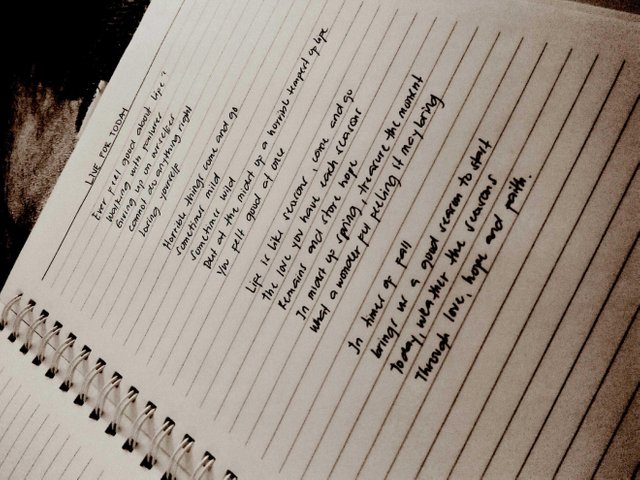 LIVE FOR TODAY
Ever feel good about life?
Working with failures
Giving up on ourselves
cannot do anything right
losing yourself
Horrible things come and go
sometimes mild
sometimes wild
but at the midst of a horrible tempest of life
You felt good at one
Life is like seasons, come and go
the love you have each season
Remains and store hope
In midst of spring, treasure the moment
what a wonderful feeling it may bring
In times of fall
brings us a good season to start
today, weather the seasons
Through love, hope and faith.